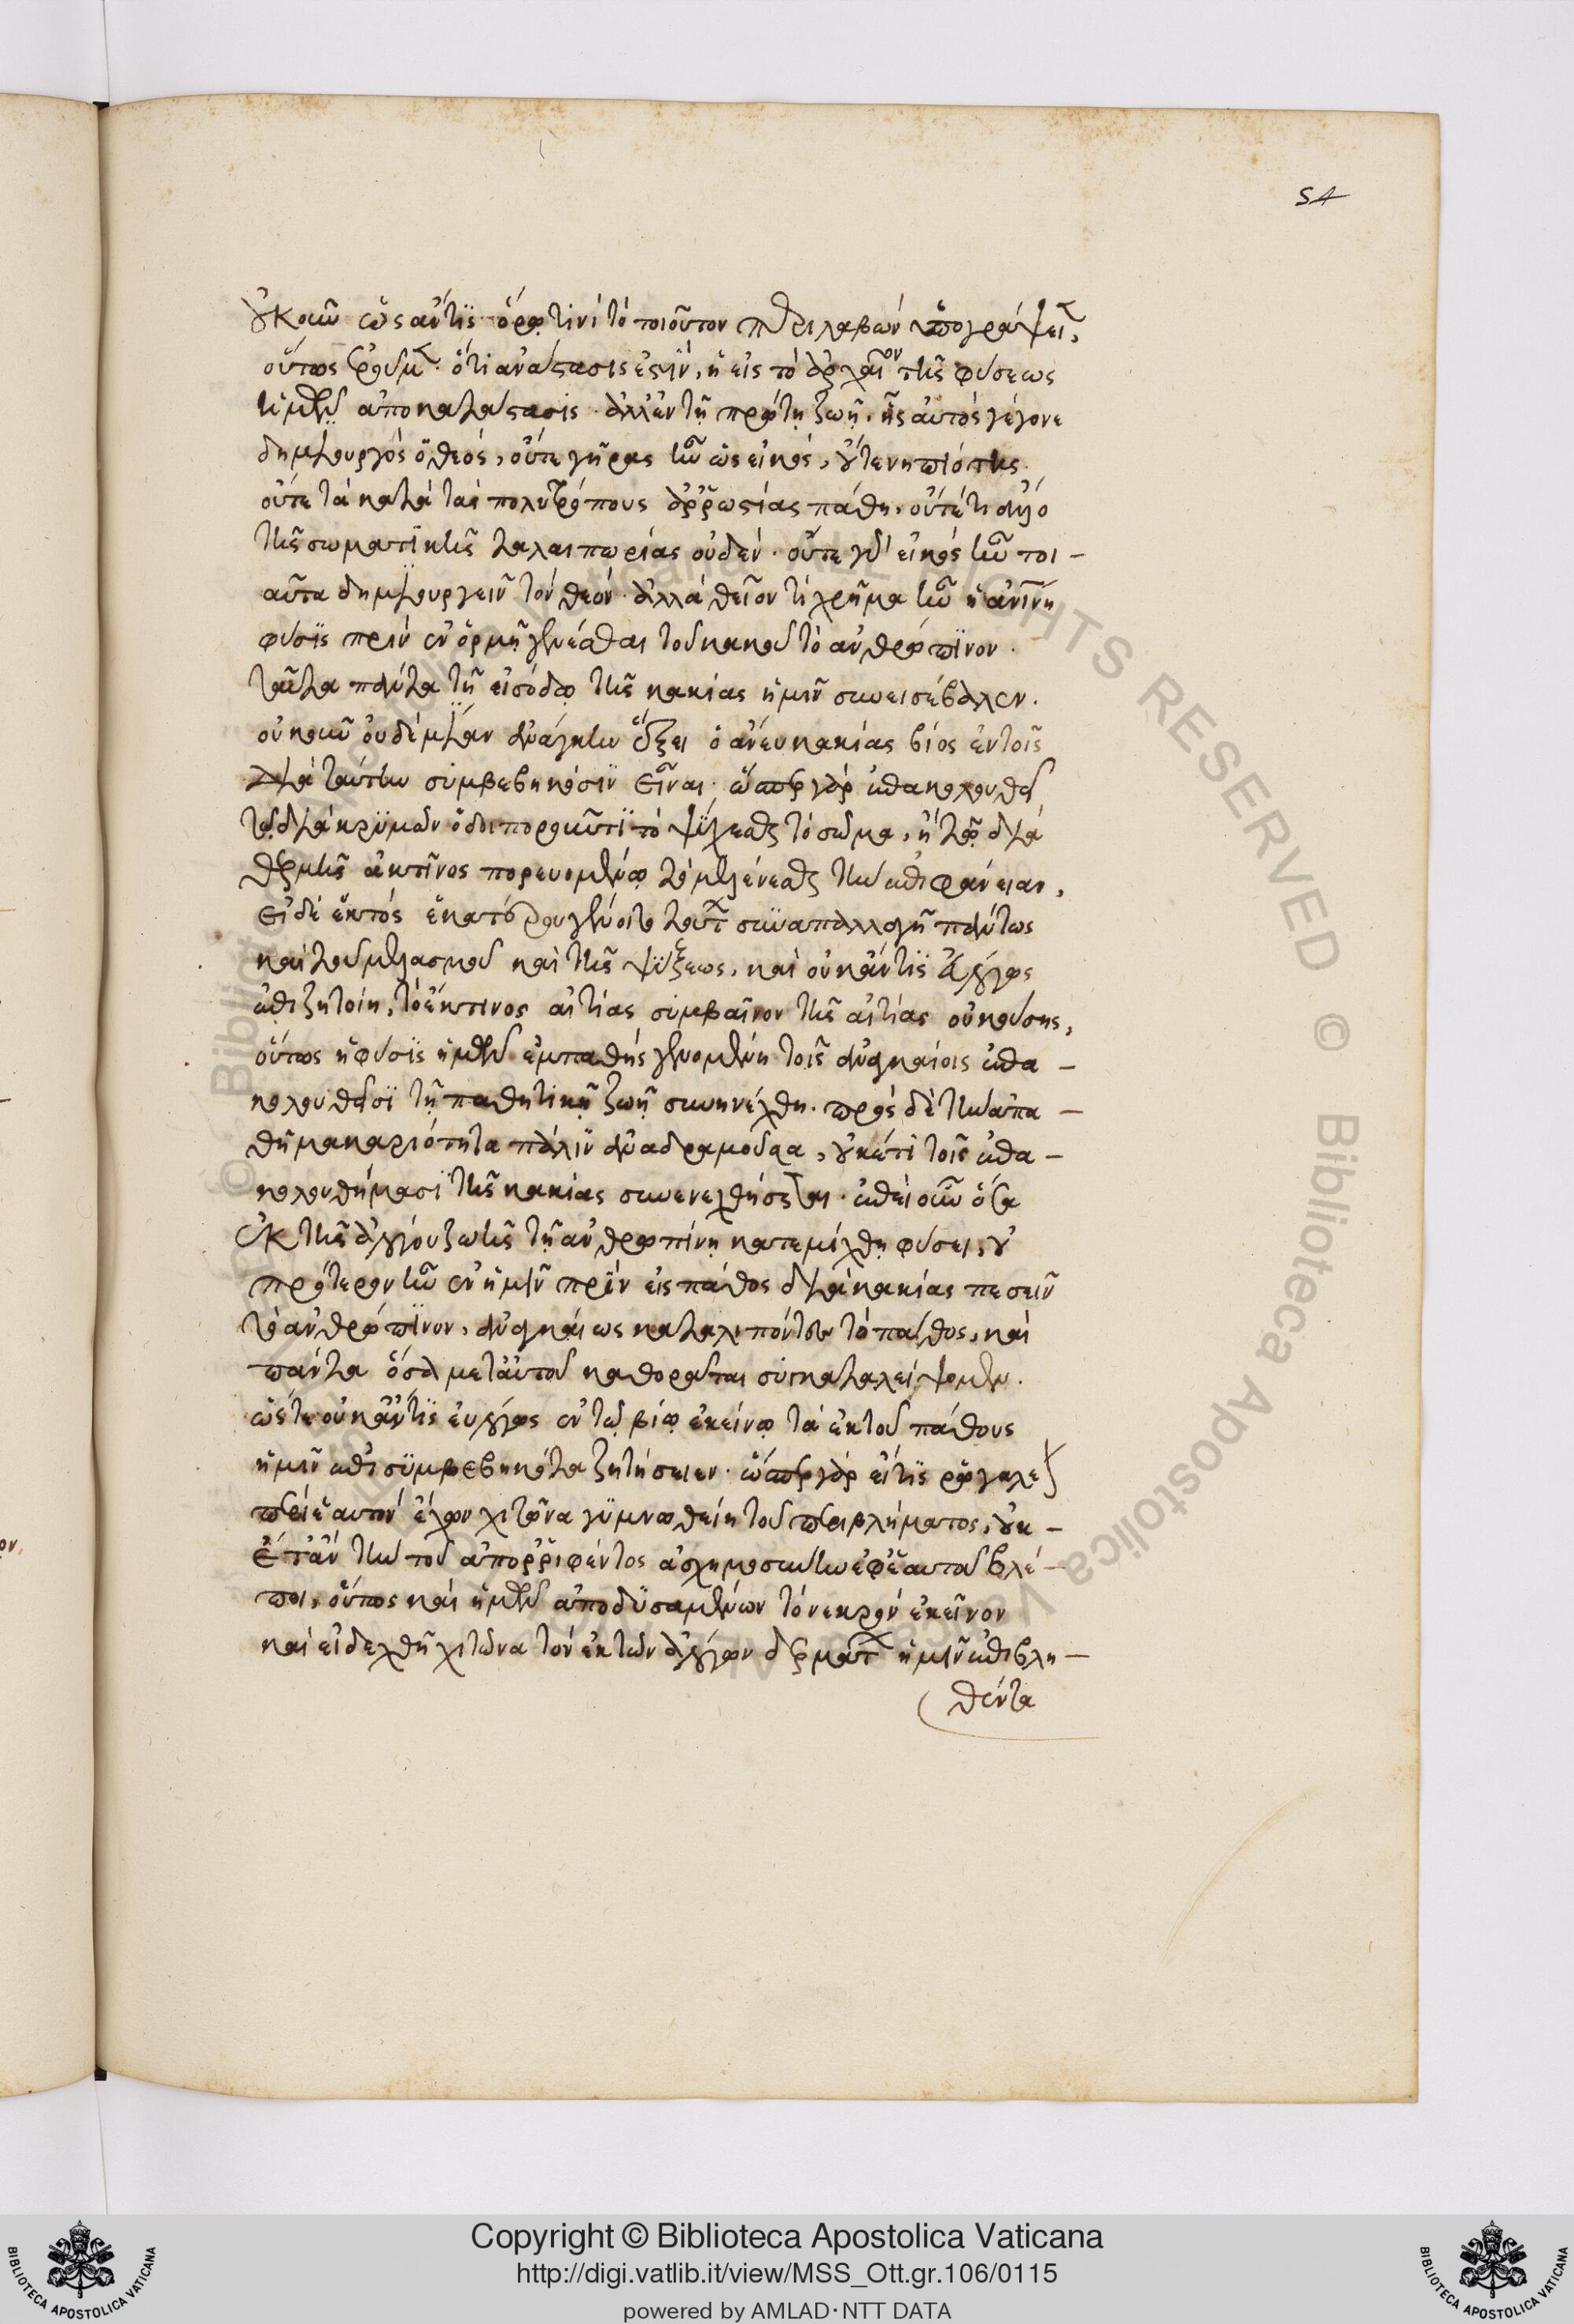 54
οὐκοῦν ὡς ἄν τις ὅρῳ τινὶ τὸ τοιοῦτον περιλαβὼν ὑπογράψειε,
οὕτως ἐροῦμεν· ὅτι ἀνάστασίς ἐστιν, ἡ εἰς τὸ ἀρχαῖον τῆς φύσεως
ἡμῶν ἀποκατάστασις. ἀλλ' ἐν τῇ πρώτῃ ζωῇ, ἧς αὐτὸς γέγονε
δημιουργὸς ὁ θεός, οὔτε γῆρας ἦν ὡς εἰκός, οὔτε νηπιότης.
οὔτε τὰ κατὰ τὰς πολυτρόπους ἀρρωστίας πάθη, οὔτέ τι ἄλλο
τῆς σωματικῆς ταλαιπωρίας οὐδέν. οὔτε γὰρ εἰκὸς ἦν τοι-
αῦτα δημιουργεῖν τὸν θεόν. ἀλλὰ θεῖόν τι χρῆμα ἦν ἡ ἀνίνη
φύσις πρὶν ἐν ὁρμῇ γενέσθαι τοῦ κακοῦ τὸ ἀνθρώπινον.
ταῦτα πάντα τῇ εἰσόδῳ τῆς κακίας ἡμῖν συνεισέβαλεν.
οὐκοῦν οὐδεμίαν ἀνάγκην ἕξει ὁ ἄνευ κακίας βίος ἐν τοῖς
διὰ ταύτην συμβεβηκόσιν εἶναι. ὥσπερ γὰρ ἐπακολουθεῖ
τῷ διὰ κρυμῶν ὁδοιποροῦντι τὸ ψύχεσθαι τὸ σῶμα, ἢ τῷ διὰ
θερμῆς ἀκτῖνος πορευομένῳ τὸ μελαίνεσθαι τὴν ἐπιφάνειαν,
εἰ δὲ ἐκτὸς ἑκατέρου γένοιτο τούτων συναπαλλαγῇ πάντως
καὶ τοῦ μελασμοῦ καὶ τῆς ψύξεως, καὶ οὐκ ἄν τις εὐλόγως
ἐπιζητοίη, τὸ ἔκ τινος αἰτίας συμβαῖνον τῆς αἰτίας οὐκ οὔσης,
οὕτως ἡ φύσις ἡμῶν ἐμπαθὴς γενομένη τοῖς ἀναγκαίοις ἐπα-
κολουθοῦσι τῇ παθητικῇ ζωῇ συνηνέχθη. πρὸς δὲ τὴν ἀπα-
θῆ μακαριότητα πάλιν ἀναδραμοῦσα, οὐκέτι τοῖς ἐπα-
κολουθήμασι τῆς κακίας συνενεχθήσεται. ἐπεὶ οὖν ὅσα
ἐκ τῆς ἀλόγου ζωῆς τῇ ἀνθρωπίνῃ κατεμίχθη φύσει, οὐ
πρότερον ἦν ἐν ἡμῖν πρὶν εἰς πάθος διὰ κακίας πεσεῖν
τὸ ἀνθρώπινον, ἀναγκαίως καταλιπόντες τὸ πάθος, καὶ
πάντα ὅσα μετ' αὐτοῦ καθορᾶται συγκαταλείψομεν.
ὥστε οὐκ ἄν τις εὐλόγως ἐν τῷ βίῳ ἐκείνῳ τὰ ἐκ τοῦ πάθους
ἡμῖν ἐπισυμβεβηκότα ζητήσειεν. ὥσπερ γὰρ εἴ τις ῥωγαλέ
περὶ ἑαυτὸν ἔχων χιτῶνα γυμνωθείη τοῦ περιβλήματος, οὐκ-
έτ' ἂν τὴν τοῦ ἀπορριφέντος ἀσχημοσύνην ἐφ' ἑαυτοῦ βλέ-
ποι, οὕτως καὶ ἡμῶν ἀποδυσαμένων τὸν νεκρὸν ἐκεῖνον
καὶ εἰδεχθῆ χιτῶνα τὸν ἐκ τῶν ἀλόγων δερμάτων ἡμῖν ἐπιβλη-
θέντα
Copyright © Biblioteca Apostolica Vaticana
http://digi.vatlib.it/view/MSS_Ott.gr.106/0115
powered by AMLAD·NTT DATA